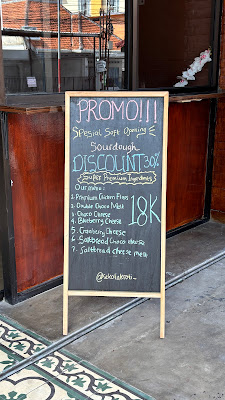 PROMO!!!
Spesial Soft Opening
Sourdough
DISCOUNT 30%
SUPER Premium Ingredients
Our menu:
1. Premium Chicken Floss
2. Double Choco Melt
3. Choco Cheese
4. Blueberry Cheese
5. Cranberry Cheese
6. Saltbread Choco cheese
7. Saltbread cheese melt
18K